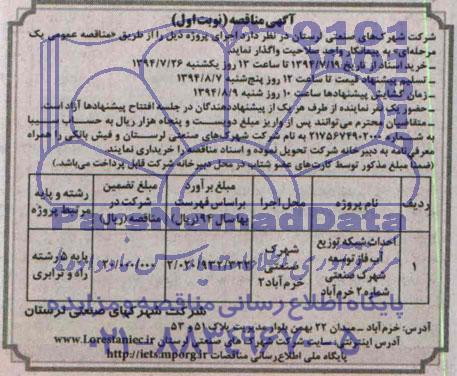 آگهی مناقصه (نوبت اول)
شرکت شهرکهای صنعتی لرستان در نظر دارد اجرای پروژه ذیل را از طریق «مناقصه عمومی یک
مرحله‌ای» به پیمانکار واجد صلاحیت واگذار نماید.
-خرید اسناد از تاریخ ۱۳۹۴/۷/۱۹ تا ساعت ۱۳ روز یکشنبه ۱۳۹۴/۷/۲۶
-تسلیم پیشنهاد قیمت تا ساعت ۱۲ روز پنج‌شنبه ۱۳۹۴/۸/۷
-زمان گشایش پیشنهادها ساعت ۱۰ روز شنبه ۱۳۹۴/۸/۹
-حضور یک نفر نماینده از طرف هر یک از پیشنهاددهندگان در جلسه افتتاح پیشنهادها آزاد است.
متقاضیان محترم می‌توانند پس از واریز مبلغ دویست و پنجاه هزار ریال به حساب سیبا
به شماره ۲۱۷۵۶۷۴۹۰۲۰۰۰ به نام شرکت شهرک‌های صنعتی لرستان و فیش بانکی را همراه
معرفی‌نامه به دبیرخانه شرکت تحویل نموده و اسناد مناقصه را خریداری نمایند.
(ضمناً مبلغ مذکور توسط کارت‌های عضو شتاب در محل دبیرخانه شرکت قابل پرداخت می‌باشد.)
ردیف
نام پروژه
محل اجرا
مبلغ برآورد
براساس فهرست
بهاسال ۹۴(ریال)
مبلغ تضمین
شرکت در
مناقصه (ریال)
رشته و پایه
مرتبط پروژه
۱
احداث شبکه توزیع
آب فاز توسعه
شهرک صنعتی
شماره ۲ خرم‌آباد
شهرک
صنعتی
خرم‌آباد ۲
پایه ۵ رشته
راه و ترابری
شرکت شهرکهای صنعتی لرستان
آدرس: خرم‌آباد ـ میدان ۲۲ بهمن بلوار مدیریت پلاک ۵۱ و ۵۳
آدرس اینترنتی: سایت شرکت شهرک‌های صنعتی لرستان www.Lorestaniec.ir
پایگاه ملی اطلاع‌رسانی مناقصات http://iets.mporg.ir
ParsNamadData
پایگاه اطلاع رسانی مناقصه و مزایده